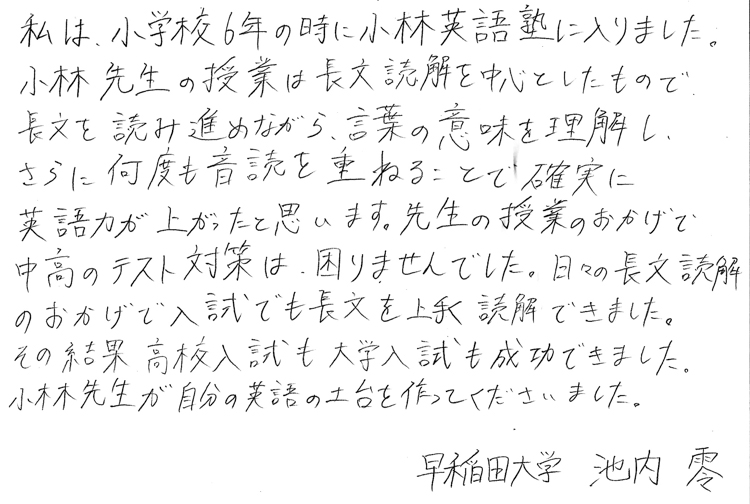 私は、小学校6年の時に小林英語塾に入りました。
小林先生の授業は長文読解を中心としたもので
長文を読み進めながら、言葉の意味を理解し、
さらに何度も音読を重ねることで確実に
英語力が上がったと思います。先生の授業のおかげで
中高のテスト対策は、困りませんでした。日々の長文読解
のおかげで入試でも長文を上手く読解できました。
その結果高校入試も大学入試も成功できました。
小林先生が自分の英語の土台を作ってくださいました。
早稲田大学 池内 零